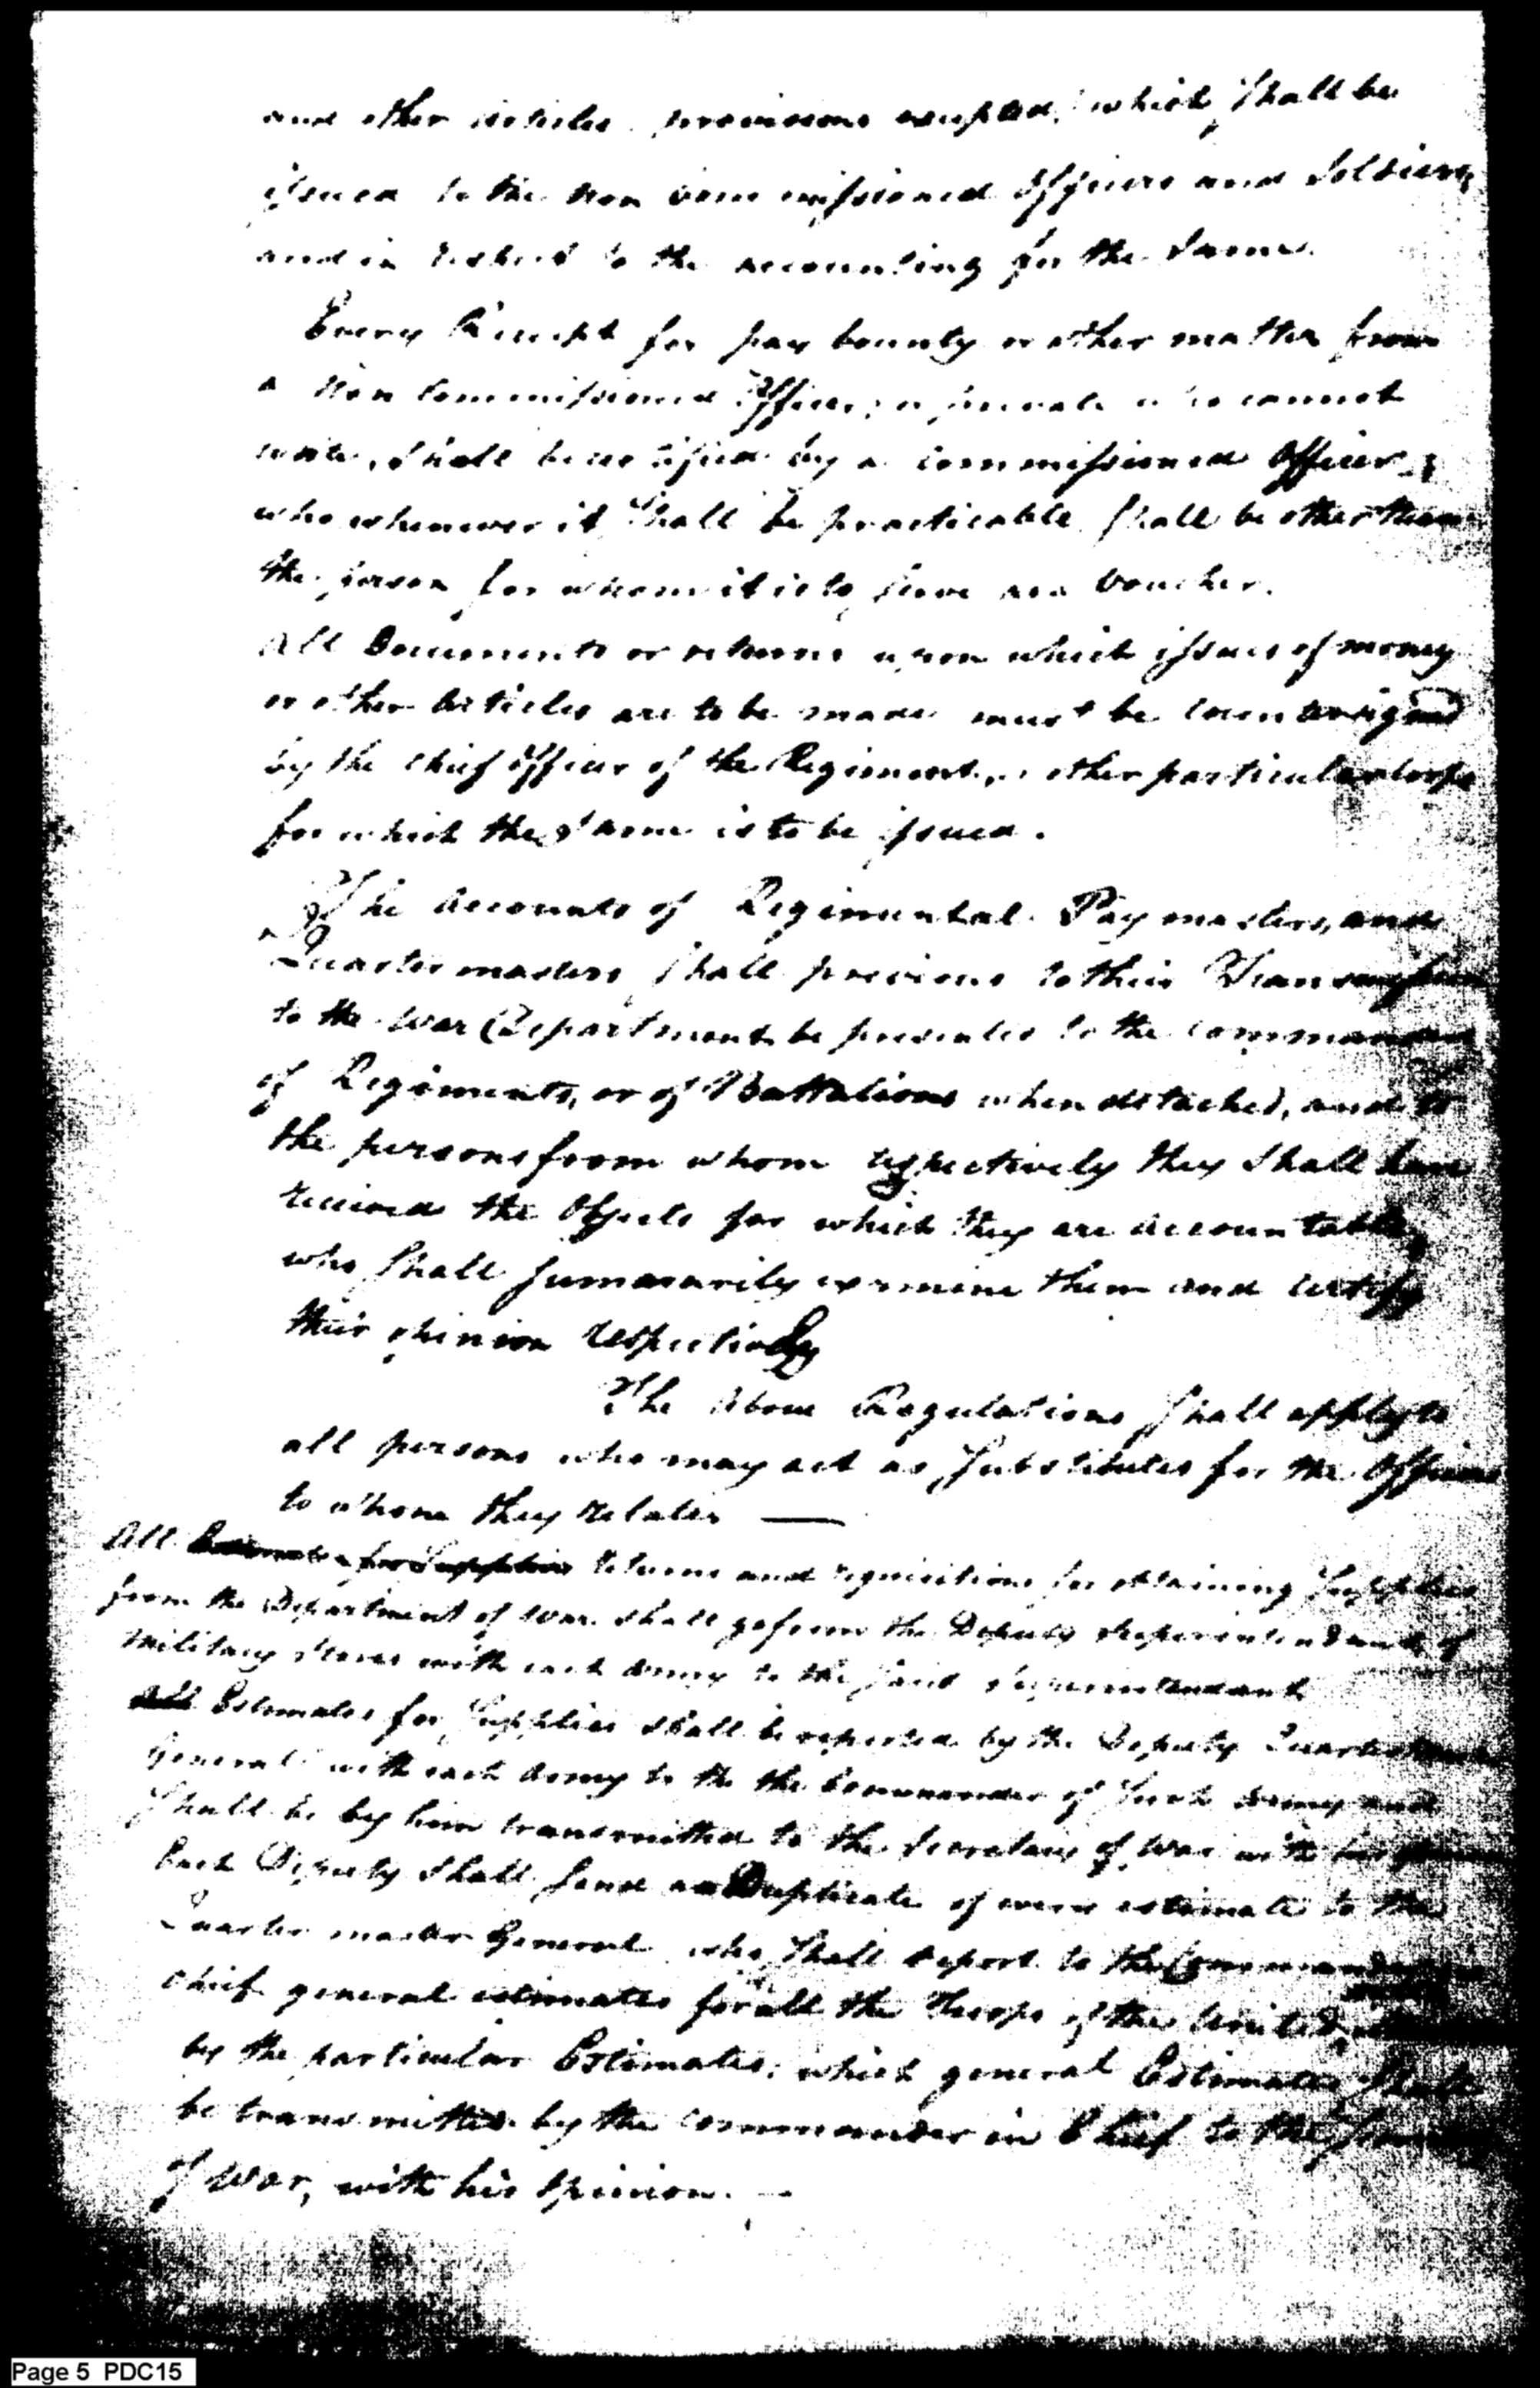 and other articles provisions excepted, which shall be
issued to the non commissioned Officers and Soldiers,
and in respect to the accounting for the Same.
Every Receipt for pay bounty or other matter from
a Non Commissioned Officer, or private who cannot
write, shall be certified by a commissioned Officer,
who whenever it shall be practicable shall be other than
the person for whom it is to serve as a Voucher.
All Documents or returns upon which issues of money
or other Articles are to be made must be countersigned
by the chief Officer of the Regiment, or other particular corps
for which the Same is to be issued.
The Accounts of Regimental Pay masters, and
Quarter masters shall previous to their Transmission
to the War Department be presented to the commanders
of Regiments, or of Battalions when detached, and to
the persons from whom respectively they shall have
received the Objects for which they are accountable,
who shall summarily examine them and certify
their opinion respectively
The Above Regulations shall apply to
all persons who may act as Substitutes for the Officers
to whom they relate. —
All Estimates for Supplies returns and requisitions for obtaining Supplies
from the Department of War shall go from the Deputy Superintendants of
Military Stores with each Army to the said Superintendant
All Estimates for Supplies shall be reported by the Deputy Quarter Master
General with each Army to the the Commander of Such Army and
Shall be by him transmitted to the Secretary of War with his opinion
Each Deputy Shall send a Duplicate of every estimate to the
Quarter master General who Shall report to the Commander in
chief general estimates for all the Troops of the United
by the particular Estimates; which general Estimates shall
be transmitted by the commander in Chief to the Secretary
of War, with his Opinion. —
Page 5 PDC15